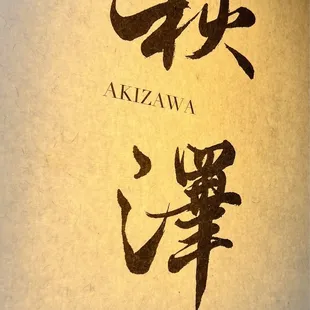 秋
AKIZAWA
澤